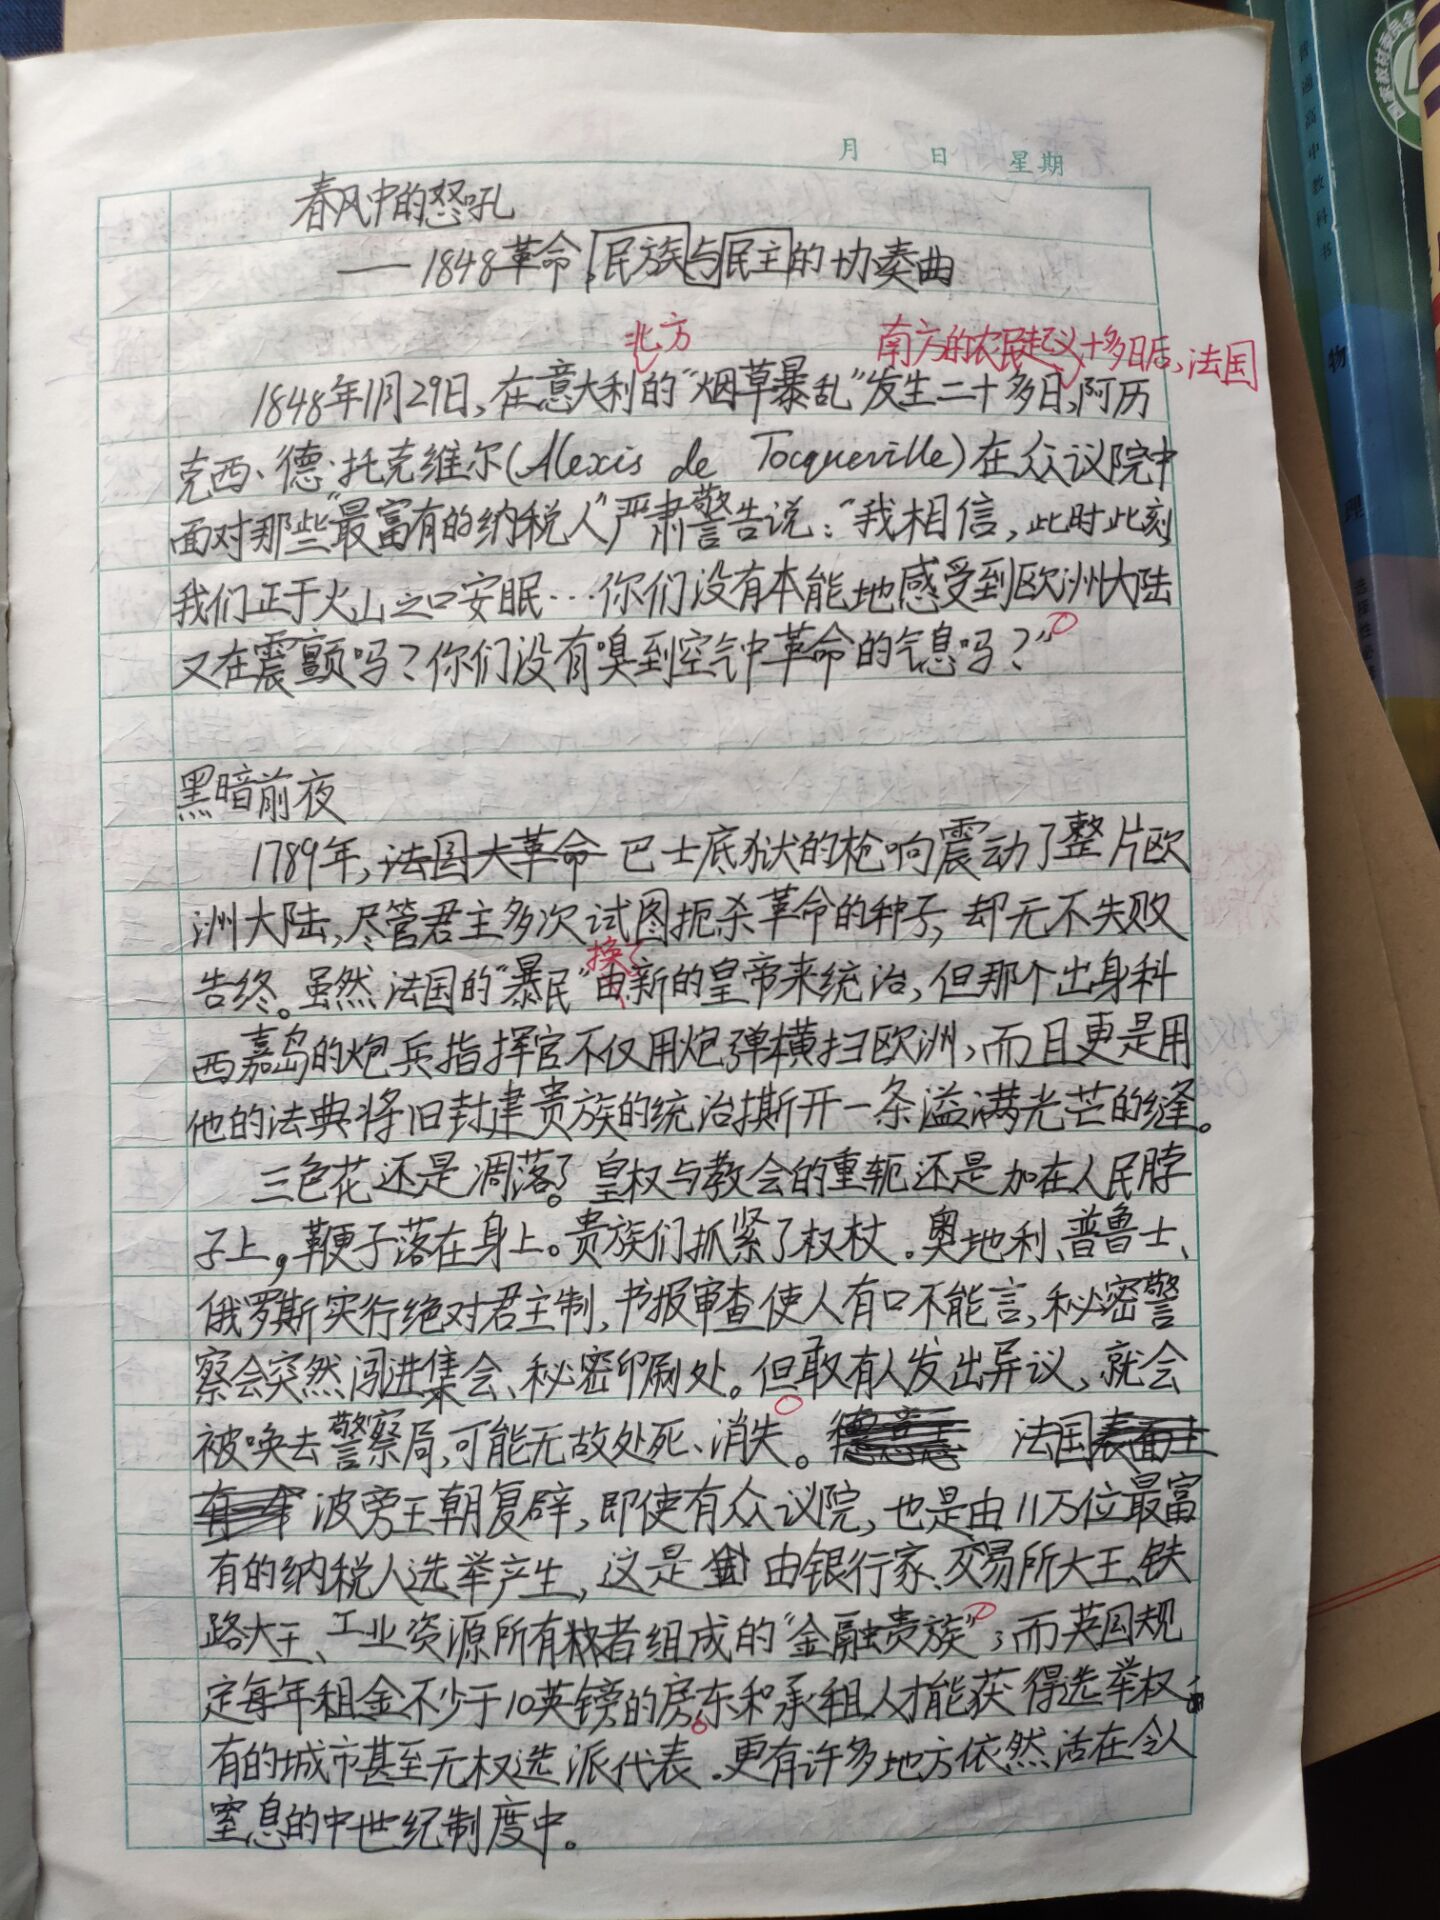 月 日 星期
春风中的怒吼
——1848革命,民族与民主的协奏曲
北方
南方的农民起义十多日后,法国
1848年1月29日,在意大利的“烟草暴乱”发生二十多日,阿历
克西·德·托克维尔(Alexis de Tocqueville)在众议院中
面对那些“最富有的纳税人”严肃警告说:“我相信,此时此刻
我们正于火山之口安眠…你们没有本能地感受到欧洲大陆
又在震颤吗?你们没有嗅到空气中革命的气息吗?”
黑暗前夜
1789年,法国大革命 巴士底狱的枪响震动了整片欧
洲大陆,尽管君主多次试图扼杀革命的种子,却无不失败
换了
告终。虽然法国的“暴民”由新的皇帝来统治,但那个出身科
西嘉岛的炮兵指挥官不仅用炮弹横扫欧洲,而且更是用
他的法典将旧封建贵族的统治撕开一条溢满光芒的缝。
三色花还是凋落了。皇权与教会的重轭还是加在人民脖
子上,鞭子落在身上。贵族们抓紧了权杖。奥地利、普鲁士、
俄罗斯实行绝对君主制,书报审查使人有口不能言,秘密警
察会突然闯进集会、秘密印刷处。但敢有人发出异议,就会
被唤去警察局,可能无故处死、消失。 法国表面上
波旁王朝复辟,即使有众议院,也是由11万位最富
有的纳税人选举产生,这是 由银行家、交易所大王、铁
路大王、工业资源所有者组成的“金融贵族”;而英国规
定每年租金不少于10英镑的房东和承租人才能获得选举权,
有的城市甚至无权选派代表。更有许多地方依然活在令人
窒息的中世纪制度中。
普通高中教科书
物理
国家教材委员会